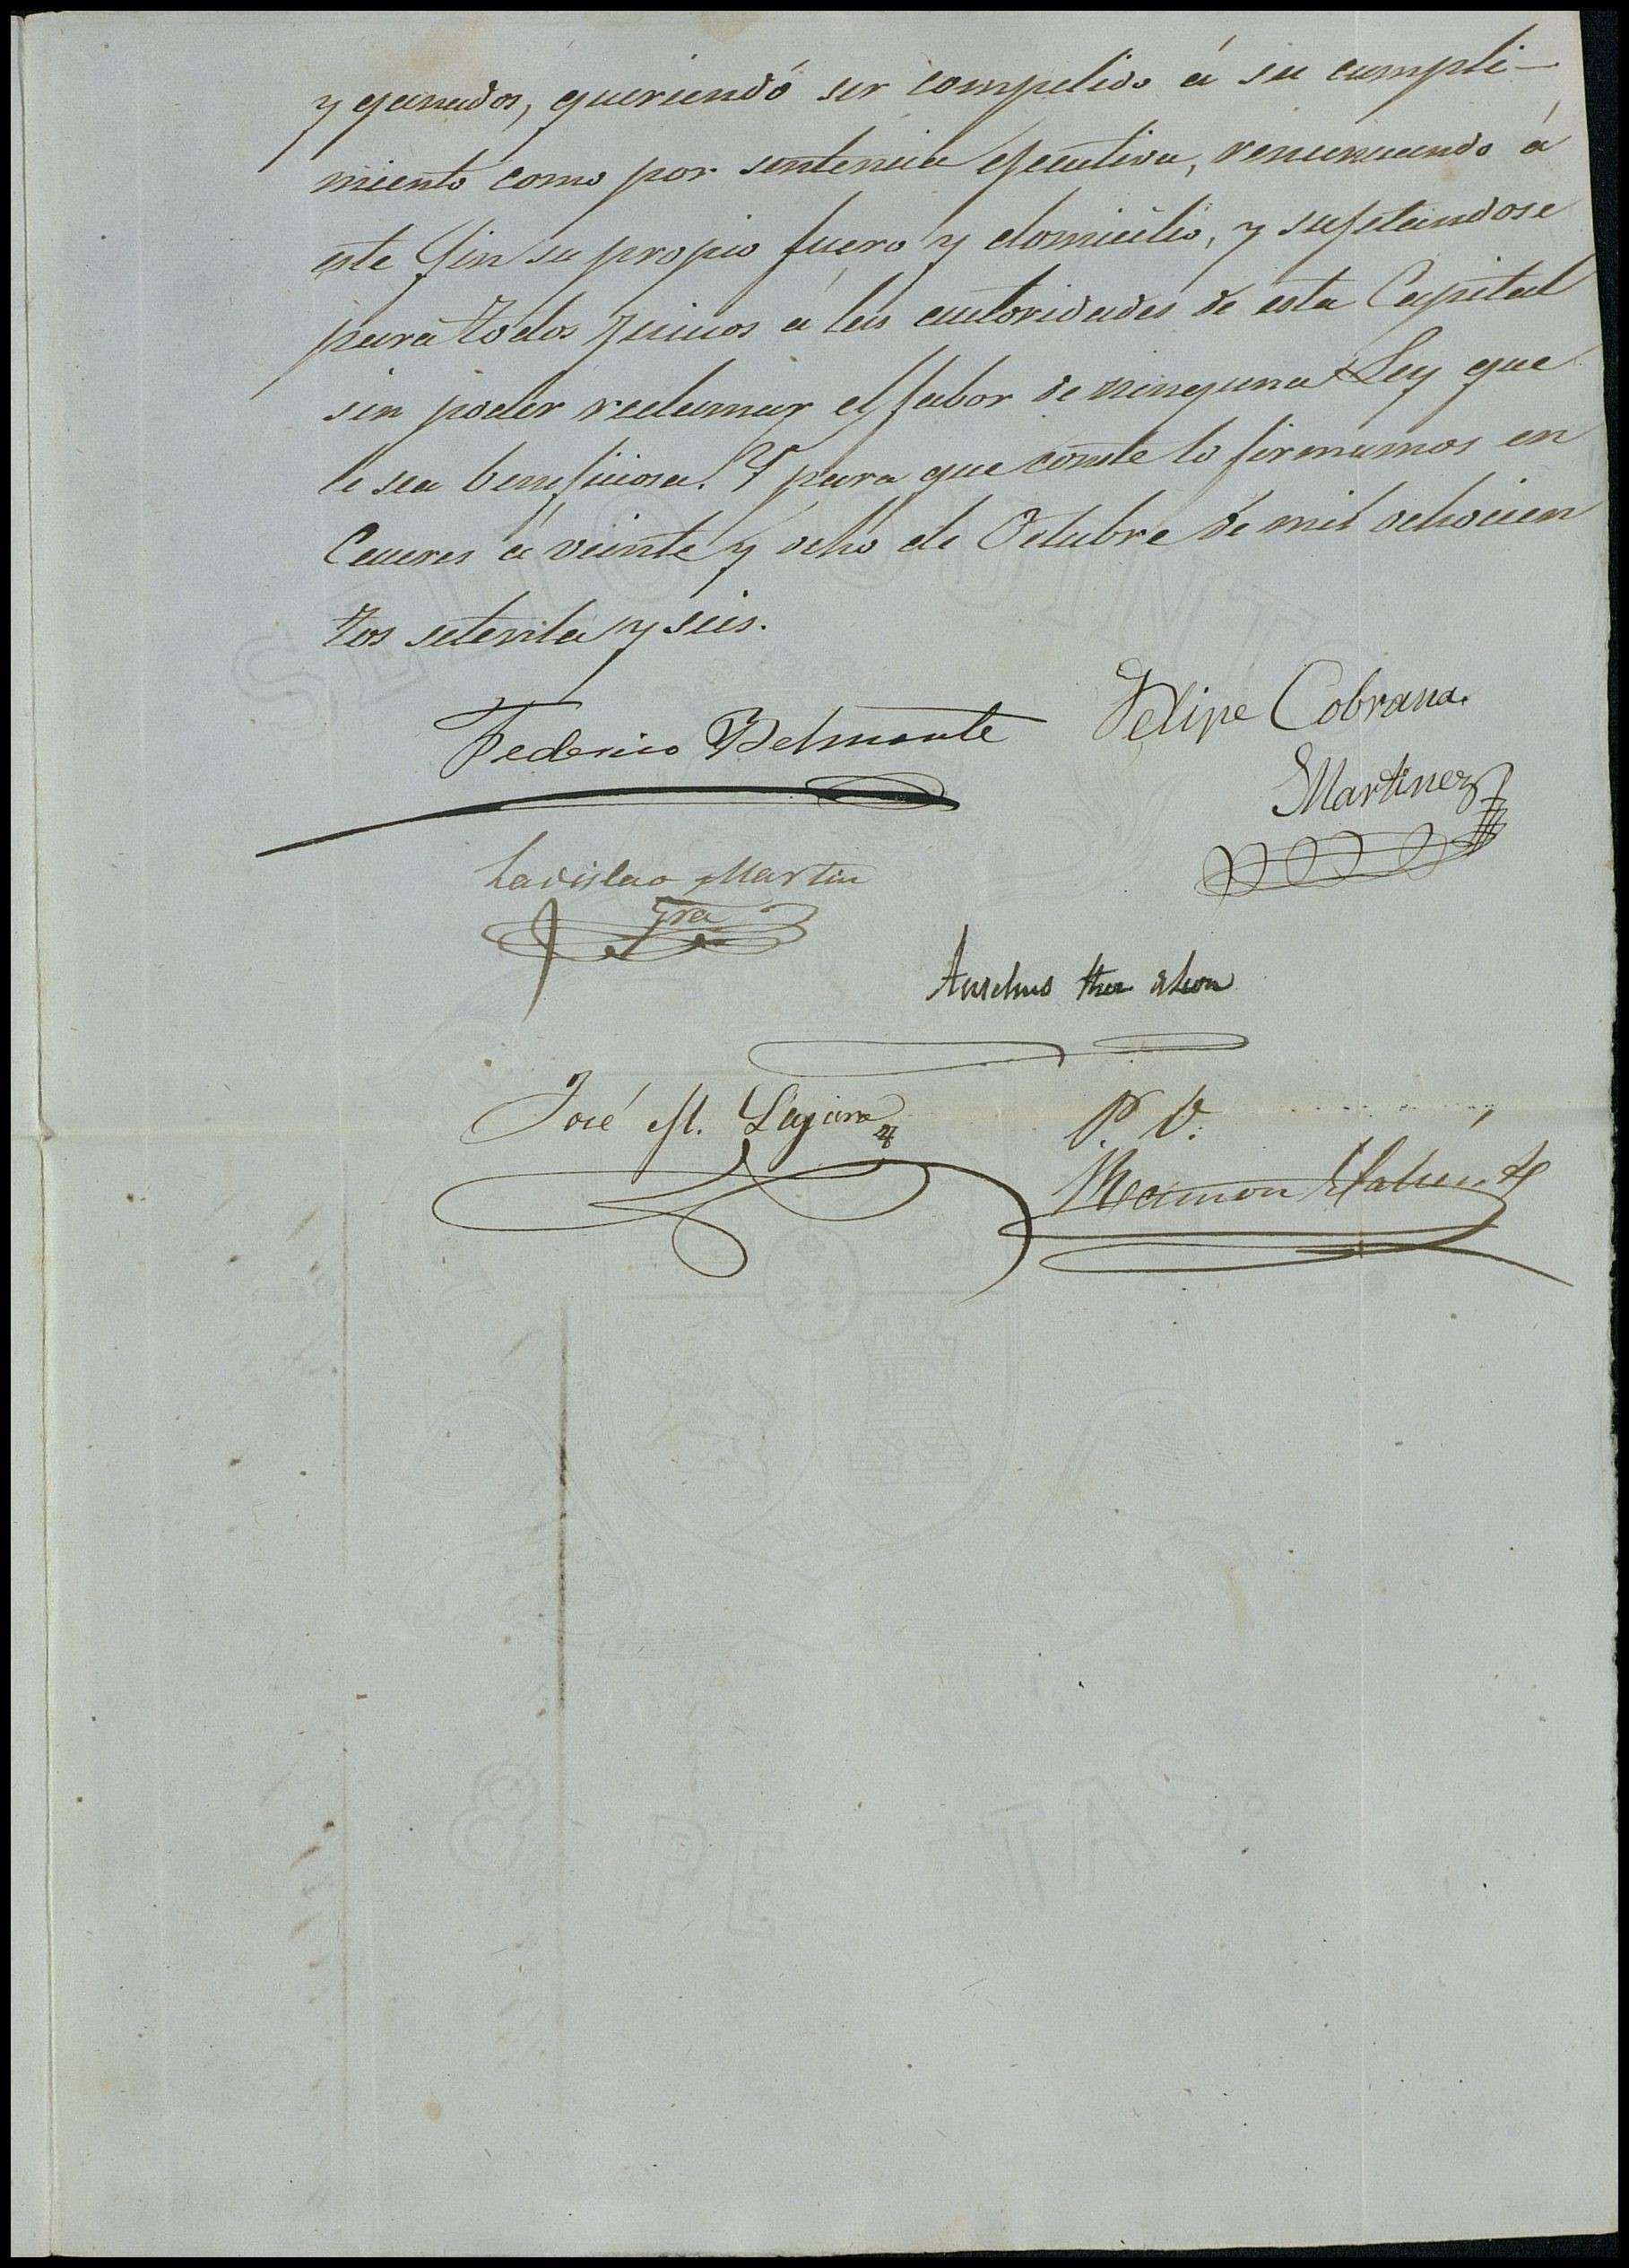 y ganados, queriendo ser compelido á su cumpli-
miento como por sentencia ejecutiva, renunciando á
este fin su propio fuero y domicilio, y sujetandose
para todos juicios á las autoridades de esta Capital
sin poder reclamar el fabor de ninguna Ley que
le sea beneficiosa. Y para que conste lo firmamos en
Caceres á veinte y ocho de Octubre de mil ochocien
tos setenta y seis.
Federico Belmonte
Felipe Cobrana
Martinez
Ladislao Martin
José M.
P. V.
Ramon
SELLO QUINT
8 PESETAS